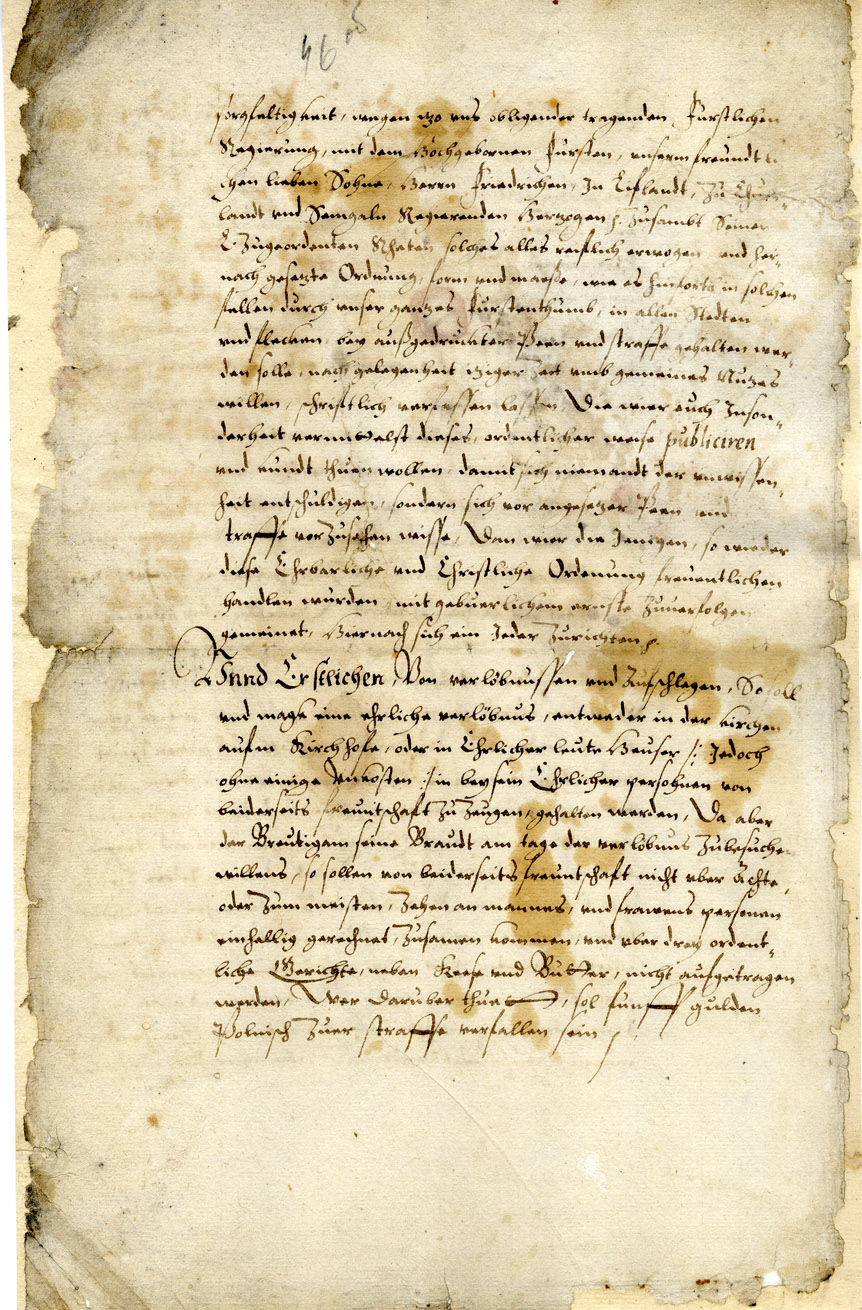 sorgfeltigkeit, wegen izo uns obligender tragenden Furstlichen
Regierung, mit dem Hochgebornen Fursten, unserm freundtli
chen lieben Sohne, Herrn Friedrichen, In Lifflandt, zu Chur-
landt und Semgaln Regierenden Hertzogen p. zusambt Seiner
L. Zugeordenten Rhäten solches alles reifflich erwogen und her-
nach gesetzte Ordnung, form und maesse, wie es hinforth in solchen
fellen durch unser gantzes Furstenthumb, in allen Stedten
und flecken, bey außgedruckter Peen und straffe gehalten wer-
den solle, nach gelegenheit itziger Zeit umb gemeines Nutzes
willen, schrifftlich verfassen lassen, Die wier euch Inson-
derheit vermittelst dieses, ordentlicher weise publiciren
und kundt thuen wollen, damit sich niemandt der unwissen-
heit entschuldigen, sondern sich vor angesetzter Peen und
straffe vorzusehen wisse, Dan wier die Jenigen, so wieder
diese Ehrbarliche und Christliche Ordenung freuentlichen
handlen wurden, mit gebuerlichem ernste zuuerfolgen
gemeinet, Hiernach sich ein Jeder zurichten p.
Unnd Erstlichen, Von verlöbnussen und Zuschlegen, So soll
und magk eine ehrliche verlöbnus, entweder in der kirchen
aufm Kirchhofe, oder in Ehrlicher leute Heuser /: Jedoch
ohne einige Unkosten :/ in beysein Ehrlicher persohnen von
beiderseits freuntschaft zu Zeugen, gehalten werden, Da aber
der Breutigam seine Braudt am tage der verlöbnus zubesuchen
willens, so sollen von beiderseits freuntschaft nicht uber Achte,
oder zum meisten, Zehen an mannes, und frawens personen
einhellig gerechnet, zusamen kommen, und uber drey ordent-
liche Gerichte, neben Keese und Butter, nicht aufgetragen
werden, Wer daruber thuett, sol funff gulden
Polnisch zuer straffe verfallen sein p